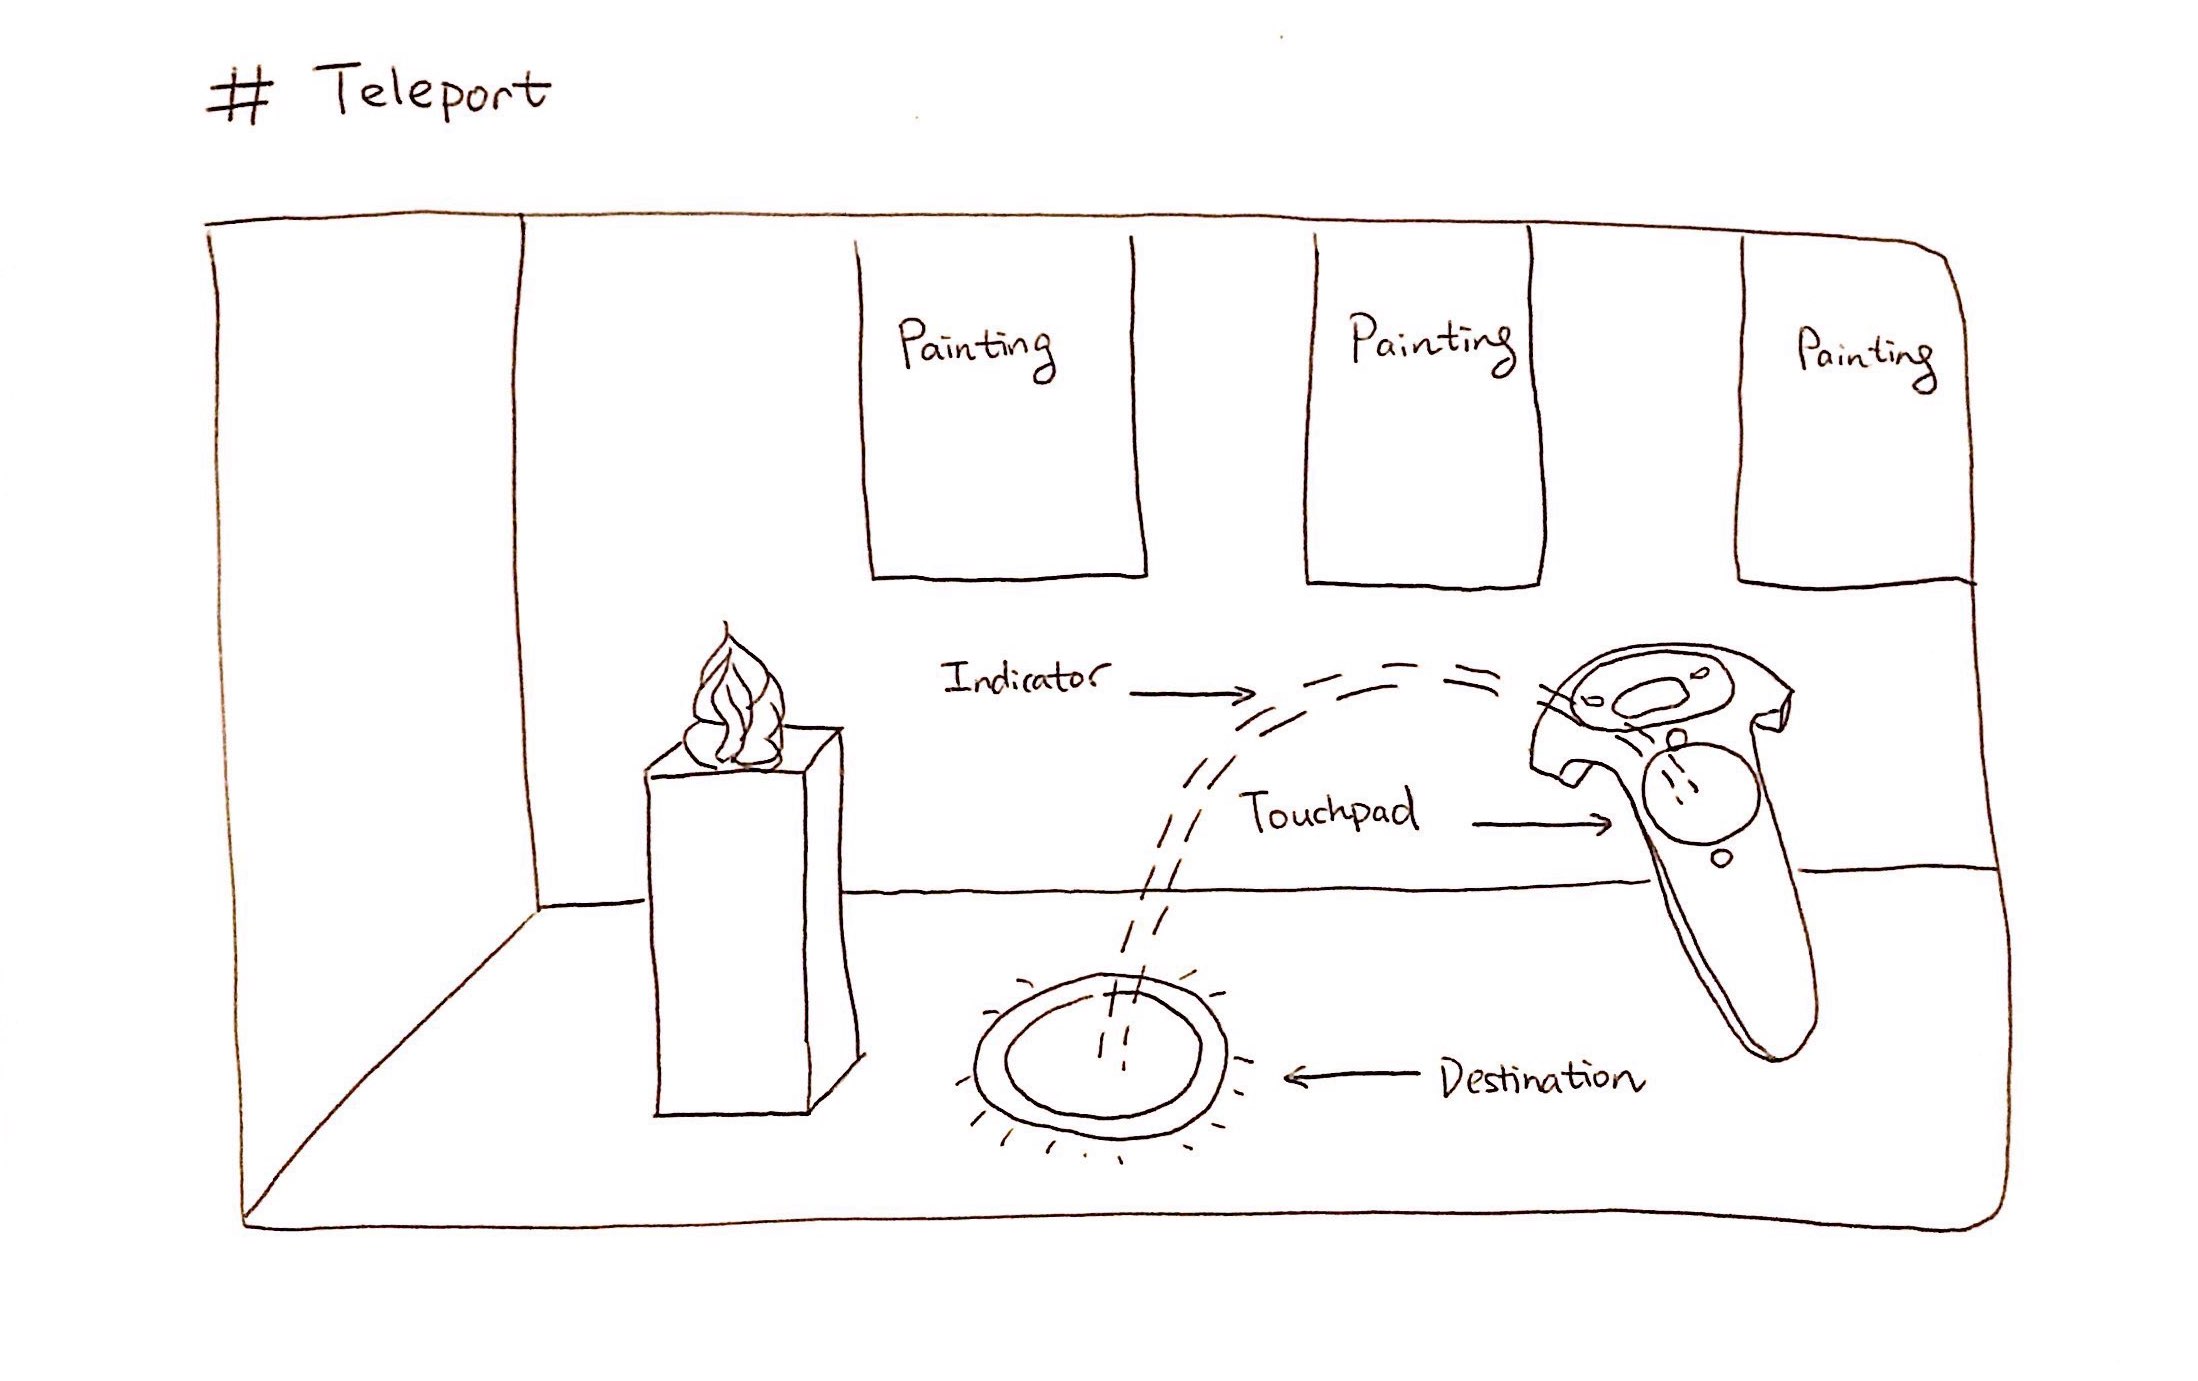 # Teleport
Painting
Painting
Painting
Indicator
Touchpad
Destination